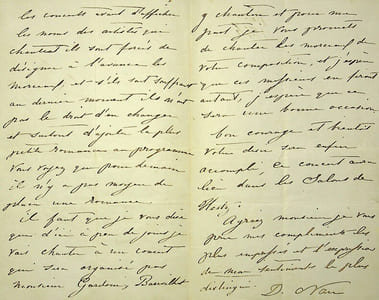 les concerts sont d'afficher
les noms des artistes qui
chantent ils sont forcés de
désigner à l'avance les
morceaux, et s'ils sont souffrants
au dernier moment ils n'ont
pas le droit d'en changer
et surtout d'ajouter la plus
petite romance au programme
Vous voyez que pour demain
il n'y a pas moyen de
placer une romance.
il faut que je vous dise
que d'ici à peu de jours je
vais chanter à un concert
qui sera organisé par
Monsieur
y chantera et pour ma
part, je vous promets
de chanter les morceaux de
votre composition, et j'espère
que ces messieurs en feront
autant, j'espère que ce
sera une bonne occasion.
bon courage et bientôt
votre désir sera enfin
accompli, ce concert aura
lieu dans les Salons de
Agréez monsieur je vous
prie mes compliments les
plus empressés et l'expression
de mes sentiments les plus
distingués
D. Nau